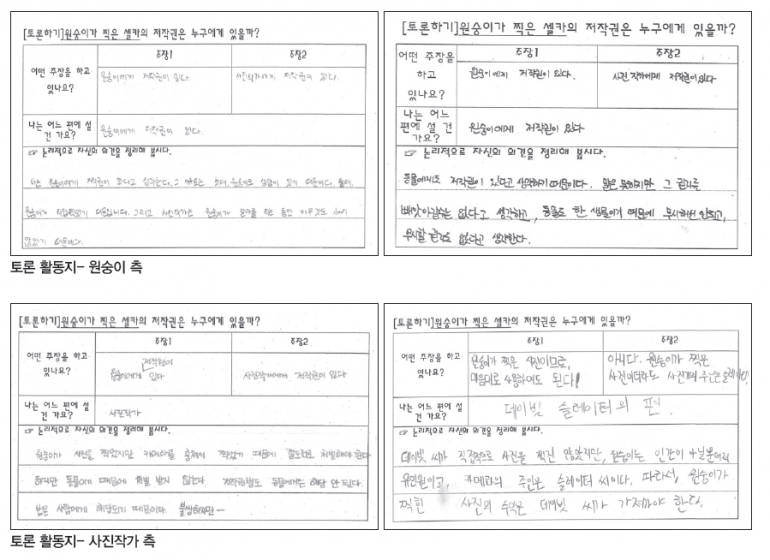 [토론하기]원숭이가 찍은 셀카의 저작권은 누구에게 있을까?
주장1 주장2
어떤 주장을 하고 있나요?
원숭이에게 저작권이 있다. 사진작가에게 저작권이 있다.
나는 어느 편에 설 건 가요?
원숭이에게 저작권이 있다.
☞ 논리적으로 자신의 의견을 정리해 봅시다.
나는 원숭이에게 저작권이 있다고 생각한다. 그 이유는 첫째, 원숭이도 생명이 있기 때문이다. 둘째,
원숭이가 직접찍었기 때문입니다. 그리고 사진작가는 원숭이가 찍을 동안 아무것도 하지
않았기 때문이다.
[토론하기]원숭이가 찍은 셀카의 저작권은 누구에게 있을까?
주장1 주장2
어떤 주장을 하고 있나요?
원숭이에게 저작권이 있다. 사진 작가에게 저작권이 있다
나는 어느 편에 설 건 가요?
원숭이에게 저작권이 있다
☞ 논리적으로 자신의 의견을 정리해 봅시다.
동물에게도 저작권이 있다고 생각하기 때문이다. 말은 못하지만 그 권리를
빼앗아갈수는 없다고 생각하고, 동물도 한 생물이기 때문에 무시해선 안되고,
무시할 권리도 없다고 생각한다.
토론 활동지- 원숭이 측
[토론하기]원숭이가 찍은 셀카의 저작권은 누구에게 있을까?
주장1 주장2
어떤 주장을 하고 있나요?
원숭이에게 저작권이 있다 사진작가에게 저작권이 있다
나는 어느 편에 설 건 가요?
사진작가
☞ 논리적으로 자신의 의견을 정리해 봅시다.
원숭이가 사진을 찍었지만 카메라를 훔쳐서 찍었기 때문에 절도죄로 처벌해야 한다
하지만 동물이기 때문에 처벌 받지 않는다. 저작권법도 동물에게는 해당 안 된다.
법은 사람에게 해당되기 때문이다. 불쌍하지만—
[토론하기]원숭이가 찍은 셀카의 저작권은 누구에게 있을까?
주장1 주장2
어떤 주장을 하고 있나요?
원숭이가 찍은 사진이므로, 마음대로 사용하여도 된다! 아니다. 원숭이가 찍은 사진이더라도 사진기의 주인은 슬레이터다.
나는 어느 편에 설 건 가요?
데이빗 슬레이터의 편.
☞ 논리적으로 자신의 의견을 정리해 봅시다.
데이빗 씨가 직접적으로 사진을 찍진 않았지만, 원숭이는 인간이 아닐뿐더러
유인원이고, 카메라의 주인은 슬레이터 씨이다. 따라서, 원숭이가
찍힌 사진의 수익은 데이빗 씨가 가져야 한다.
토론 활동지- 사진작가 측